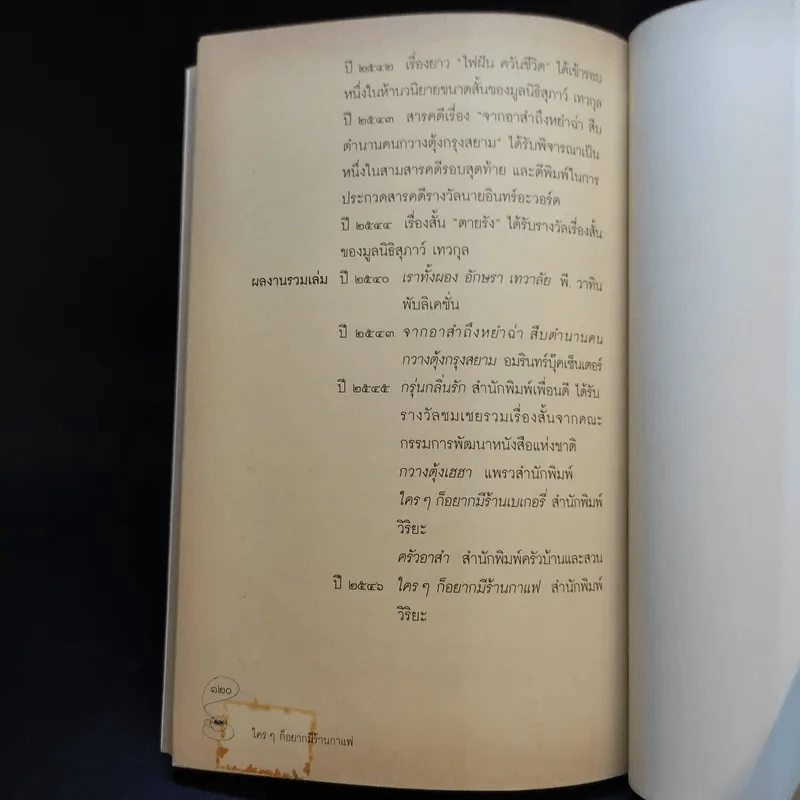 ปี ๒๕๔๒ เรื่องยาว "ไฟฝัน ควันชีวิต" ได้เข้ารอบ
หนึ่งในห้านวนิยายขนาดสั้นของมูลนิธิสุภาว์ เทวกุล
ปี ๒๕๔๓ สารคดีเรื่อง "จากอาสำถึงหยำฉ่า สืบ
ตำนานคนกวางตุ้งกรุงสยาม" ได้รับพิจารณาเป็น
หนึ่งในสามสารคดีรอบสุดท้าย และตีพิมพ์ในการ
ประกวดสารคดีรางวัลนายอินทร์อะวอร์ด
ปี ๒๕๔๔ เรื่องสั้น "ตายรัง" ได้รับรางวัลเรื่องสั้น
ของมูลนิธิสุภาว์ เทวกุล
ผลงานรวมเล่ม ปี ๒๕๔๐ เราทั้งผอง อักษรา เทวาลัย พี. วาทิน
พับลิเคชั่น
ปี ๒๕๔๓ จากอาสำถึงหยำฉ่า สืบตำนานคน
กวางตุ้งกรุงสยาม อมรินทร์บุ๊คเซ็นเตอร์
ปี ๒๕๔๕ กรุ่นกลิ่นรัก สำนักพิมพ์เพื่อนดี ได้รับ
รางวัลชมเชยรวมเรื่องสั้นจากคณะ
กรรมการพัฒนาหนังสือแห่งชาติ
กวางตุ้งเฮฮา แพรวสำนักพิมพ์
ใครๆ ก็อยากมีร้านเบเกอรี่ สำนักพิมพ์
วิริยะ
ครัวอาสำ สำนักพิมพ์ครัวบ้านและสวน
ปี ๒๕๔๖ ใครๆ ก็อยากมีร้านกาแฟ สำนักพิมพ์
วิริยะ
๑๒๐
ใครๆ ก็อยากมีร้านกาแฟ